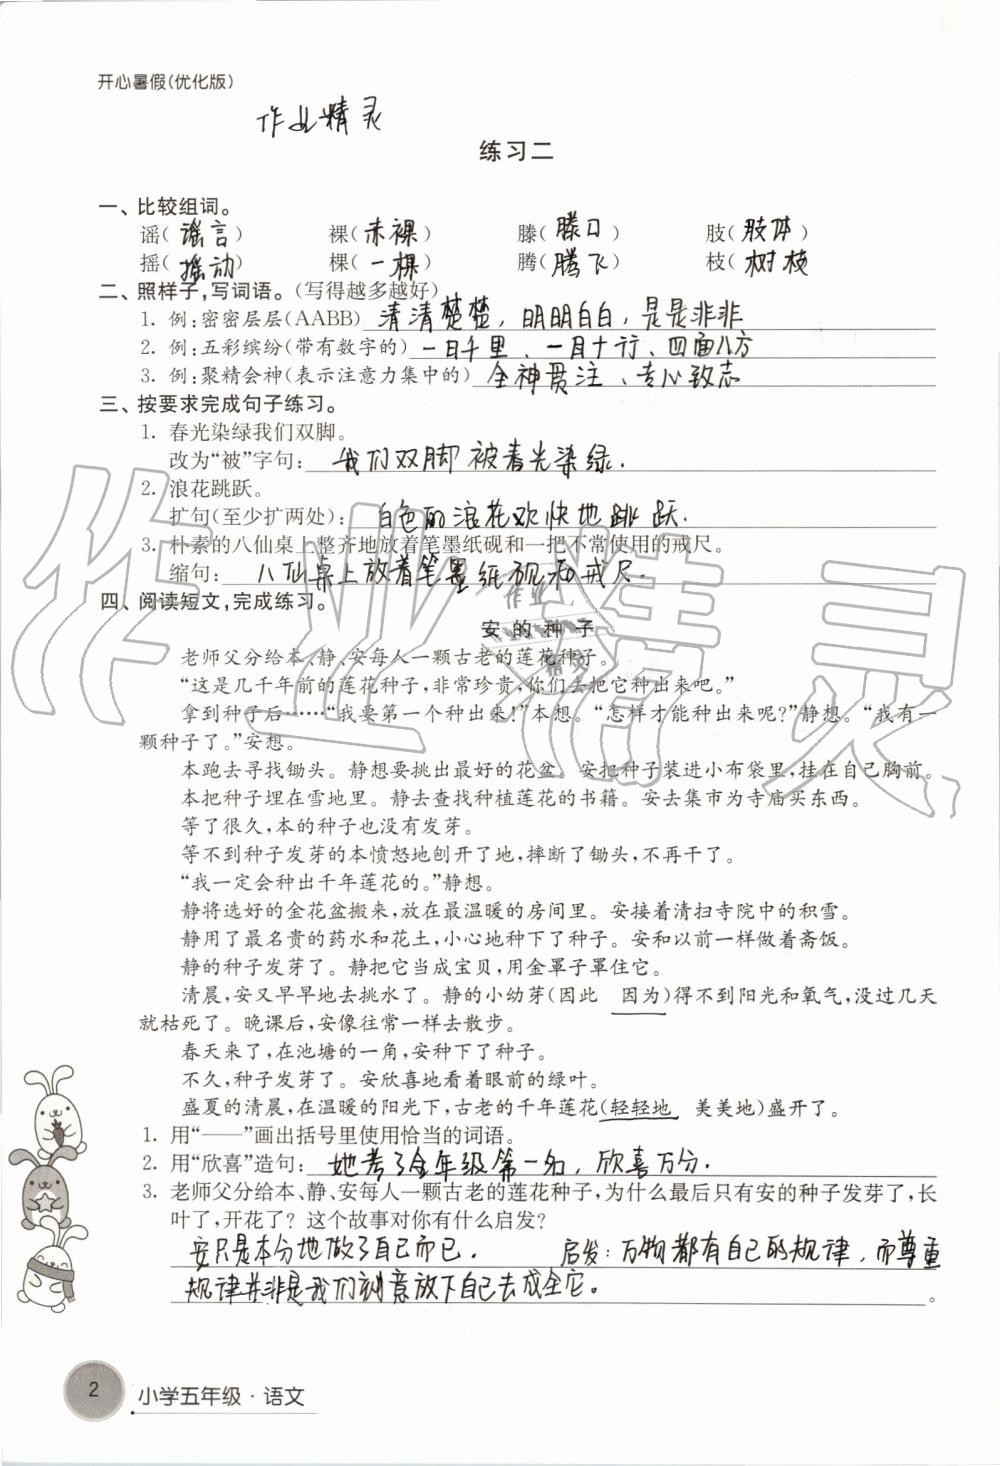 开心暑假(优化版)
作业精灵
练习二
一、比较组词。
谣(谣言) 裸(赤裸) 滕(滕口) 肢(肢体)
摇(摇动) 棵(一棵) 腾(腾飞) 枝(树枝)
二、照样子,写词语。(写得越多越好)
1. 例:密密层层(AABB) 清清楚楚，明明白白，是是非非
2. 例:五彩缤纷(带有数字的) 一日千里、一目十行、四面八方
3. 例:聚精会神(表示注意力集中的) 全神贯注、专心致志
三、按要求完成句子练习。
1. 春光染绿我们双脚。
改为“被”字句: 我们双脚被春光染绿.
2. 浪花跳跃。
扩句(至少扩两处): 白色的浪花欢快地跳跃.
3. 朴素的八仙桌上整齐地放着笔墨纸砚和一把不常使用的戒尺。
缩句: 八仙桌上放着笔墨纸砚和戒尺.
四、阅读短文,完成练习。
安的种子
老师父分给本、静、安每人一颗古老的莲花种子。
“这是几千年前的莲花种子,非常珍贵,你们去把它种出来吧。”
拿到种子后……“我要第一个种出来!”本想。“怎样才能种出来呢?”静想。“我有一
颗种子了。”安想。
本跑去寻找锄头。静想要挑出最好的花盆。安把种子装进小布袋里,挂在自己胸前。
本把种子埋在雪地里。静去查找种植莲花的书籍。安去集市为寺庙买东西。
等了很久,本的种子也没有发芽。
等不到种子发芽的本愤怒地刨开了地,摔断了锄头,不再干了。
“我一定会种出千年莲花的。”静想。
静将选好的金花盆搬来,放在最温暖的房间里。安接着清扫寺院中的积雪。
静用了最名贵的药水和花土,小心地种下了种子。安和以前一样做着斋饭。
静的种子发芽了。静把它当成宝贝,用金罩子罩住它。
清晨,安又早早地去挑水了。静的小幼芽(因此 因为)得不到阳光和氧气,没过几天
就枯死了。晚课后,安像往常一样去散步。
春天来了,在池塘的一角,安种下了种子。
不久,种子发芽了。安欣喜地看着眼前的绿叶。
盛夏的清晨,在温暖的阳光下,古老的千年莲花(轻轻地 美美地)盛开了。
1. 用“——”画出括号里使用恰当的词语。
2. 用“欣喜”造句: 她考了全年级第一名，欣喜万分.
3. 老师父分给本、静、安每人一颗古老的莲花种子,为什么最后只有安的种子发芽了,长
叶了,开花了? 这个故事对你有什么启发?
安只是本分地做了自己而已. 启发:万物都有自己的规律,而尊重
规律并非是我们刻意放下自己去成全它。
2
小学五年级·语文